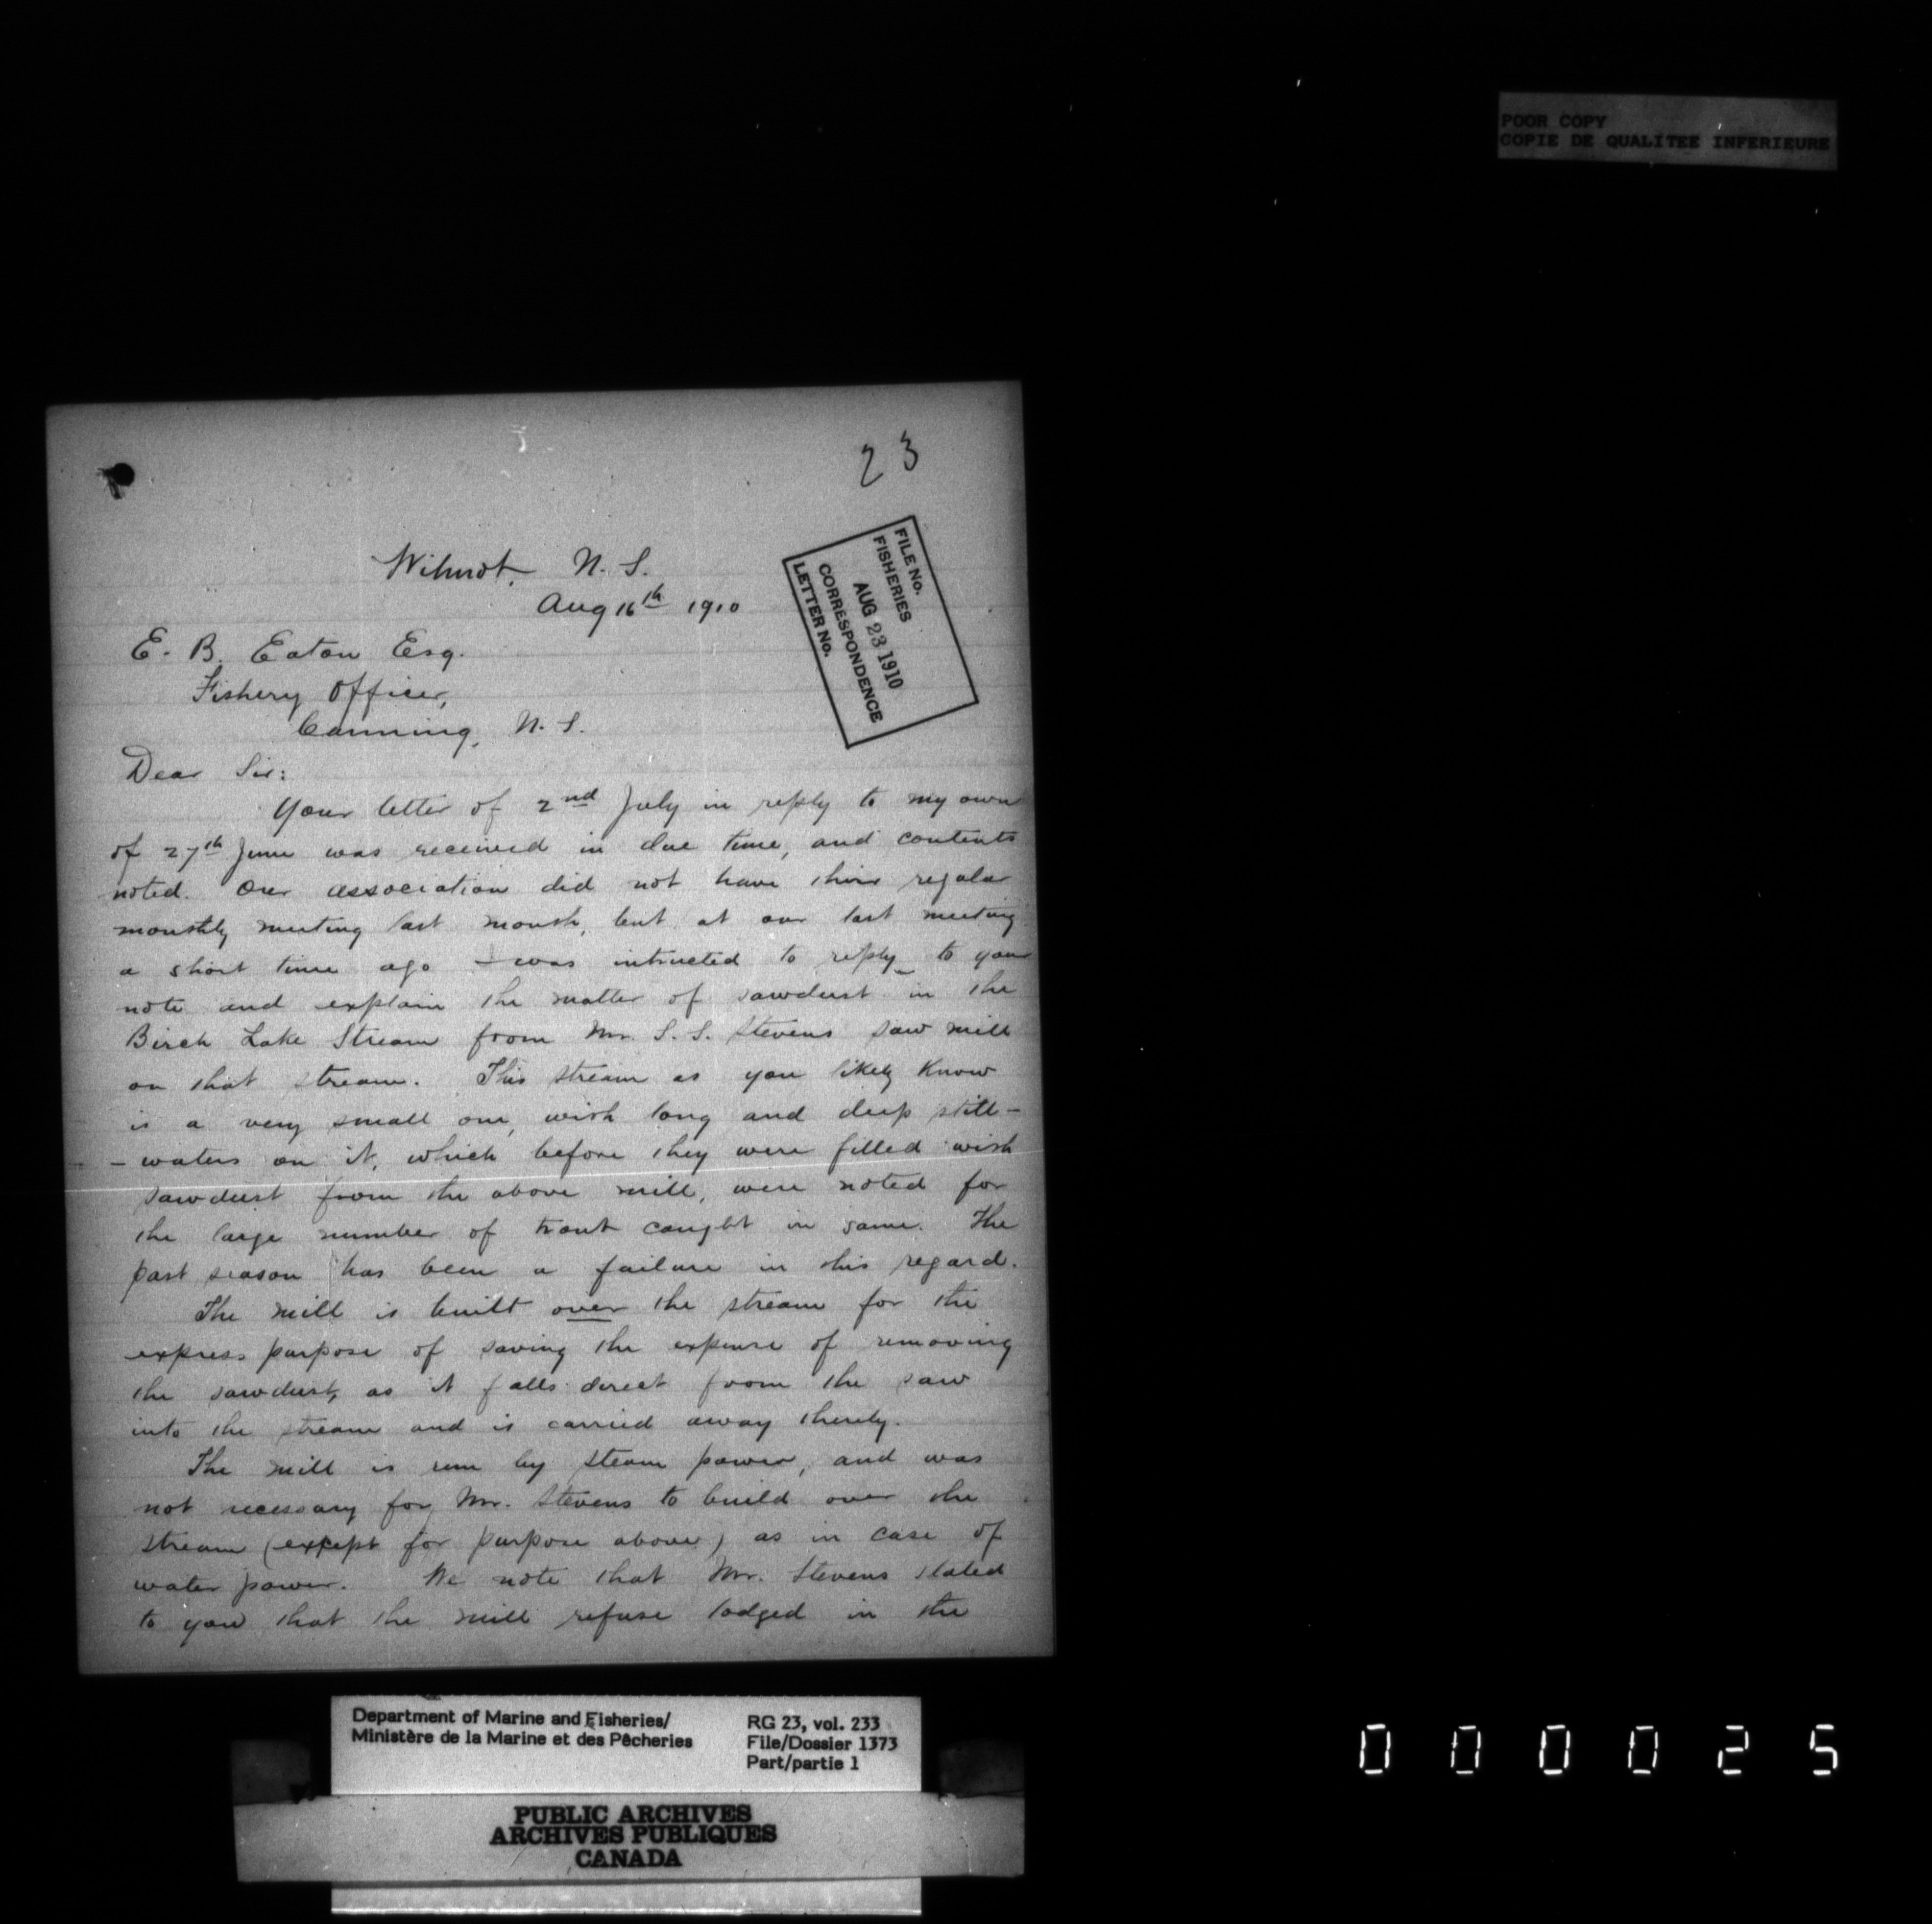 POOR COPY
COPIE DE QUALITEE INFERIEURE
23
FILE No.
FISHERIES
AUG 23 1910
CORRESPONDENCE
LETTER No.
Wilmot, N. S.
Aug 16th 1910
E. B. Eaton Esq.
Fishery Officer,
Canning, N. S.
Dear Sir:
Your letter of 2nd July in reply to my own
of 27th June was received in due time, and contents
noted. Our association did not have their regular
monthly meeting last month, but at our last meeting
a short time ago I was intructed to reply to your
note and explain the matter of sawdust in the
Birch Lake Stream from Mr. S. S. Stevens saw mill
on that stream. This stream as you likely know
is a very small one, with long and deep still-
- waters on it, which before they were filled with
sawdust from the above mill, were noted for
the large number of trout caught in same. The
past season has been a failure in this regard.
The mill is built over the stream for the
express purpose of saving the expense of removing
the sawdust, as it falls direct from the saw
into the stream and is carried away thereby.
The mill is run by steam power, and was
not necessary for Mr. Stevens to build over the
stream (except for purpose above) as in case of
water power. We note that Mr. Stevens stated
to you that the mill refuse lodged in the
Department of Marine and Fisheries/
Ministère de la Marine et des Pêcheries
RG 23, vol. 233
File/Dossier 1373
Part/partie 1
PUBLIC ARCHIVES
ARCHIVES PUBLIQUES
CANADA
000025